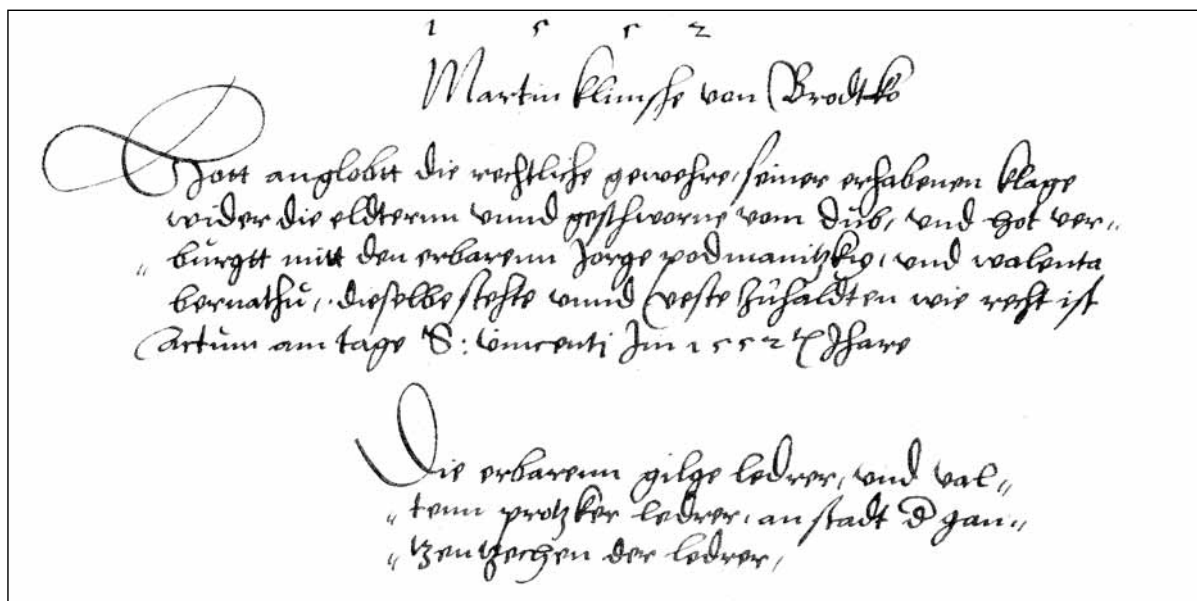 1 5 5 2
Martin Klimsche von Brodtko
Hott anglobtt die rechtliche gewehre, seiner erhabenen klage
wider die eldternn vnnd geschworne vom dub, vnd hot ver„
„ burgtt mitt den erbarenn Jorge podmanitzkÿ, vnd walenta
bernathu, dieselbe stehte vnnd veste zuhaldten wie recht ist
Actum am tage S: vincentj Jm 1552 Jhare
Die erbarenn gilge ledrer, vnd val„
„ tenn protzker ledrer, an stadt d gan„
„ tzen tzechen der ledrer,